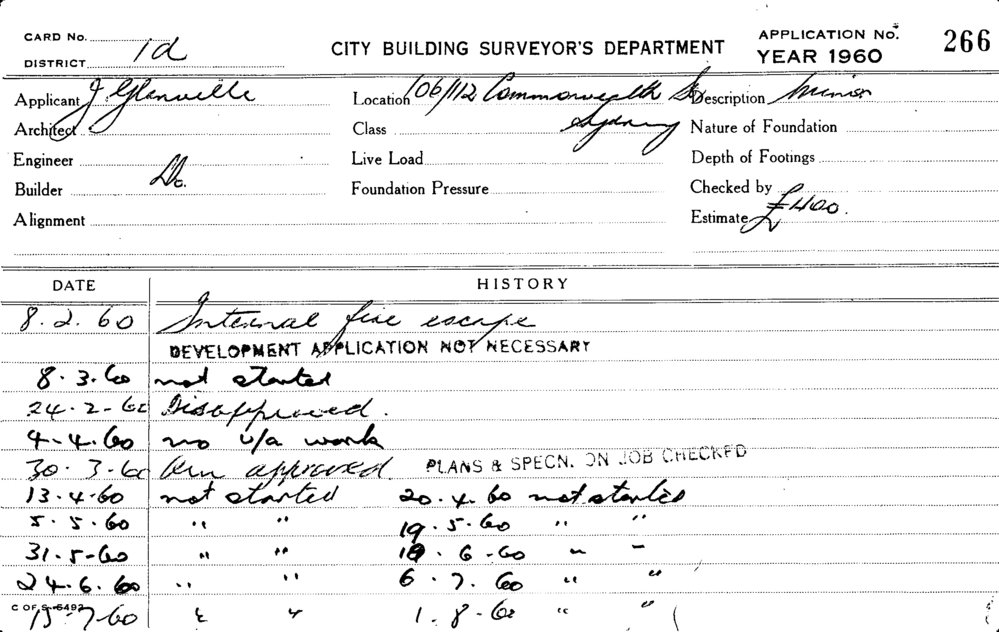 CARD No.
DISTRICT 1d
CITY BUILDING SURVEYOR'S DEPARTMENT
APPLICATION No.
YEAR 1960
266
Applicant J Glanville
Location 106/112 Commonwealth St
Description Minor
Architect
Class Sydney
Nature of Foundation
Engineer
Live Load
Depth of Footings
Builder Do.
Foundation Pressure
Checked by
Alignment
Estimate £400.
DATE HISTORY
8.2.60 Internal fire escape
DEVELOPMENT APPLICATION NOT NECESSARY
8.3.60 not started
24.2-60 Disapproved.
4-4.60 no u/a work
30.3-60 approved. PLANS & SPECN. ON JOB CHECKED
13.4-60 not started 20.4.60 not started
5.5.60 " " 19.5-60 " "
31.5-60 " " 6-60 " "
24.6.60 " " 6.7.60 " "
15-7-60 " " 1.8-60 " "
C OF S 6492